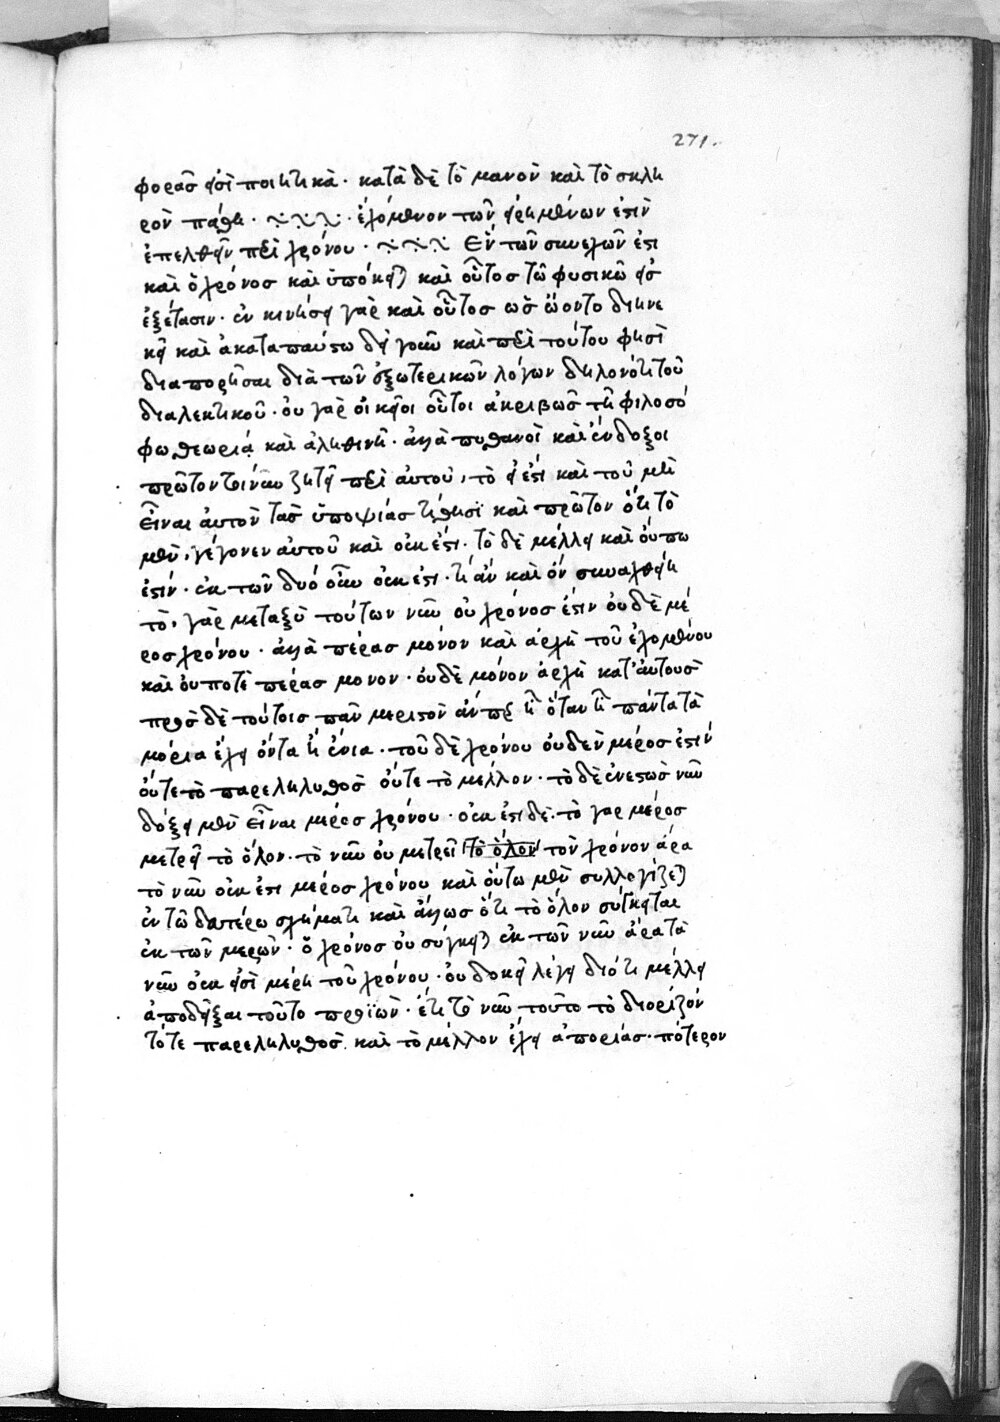 271.
φορᾶς εἰσὶ ποιητικὰ · κατὰ δὲ τὸ μανὸν καὶ τὸ σκλη
ρὸν πάθη · ἑχόμενον τῶν εἰρημένων ἐστὶν
ἐπελθεῖν περὶ χρόνου · Ἓν τῶν συνεχῶν ἐστι
καὶ ὁ χρόνος καὶ ὑπόκειται καὶ οὗτος τῶ φυσικῶ εἰς
ἐξέτασιν · ἐν κινήσει γὰρ καὶ οὗτος ὡς ὤοντο διηνε
κεῖ καὶ ἀκαταπαύστω δεῖ γοῦν καὶ περὶ τούτου φησὶ
διαπορῆσαι διὰ τῶν ἐξωτερικῶν λόγων δηλονότι τοῦ
διαλεκτικοῦ · οὐ γὰρ οἰκεῖοι οὗτοι ἀκριβῶς τῆ φιλοσό
φω θεωρία καὶ ἀληθινῆ · ἀλλὰ πιθανοὶ καὶ ἔνδοξοι
πρῶτον τοίνυν ζητεῖ περὶ αὐτοῦ, τὸ εἰ ἔστι καὶ τοῦ μὴ
εἶναι αὐτὸν τὰς ὑποψίας τίθησι καὶ πρῶτον ὅτι τὸ
μὲν, γέγονεν αὐτοῦ καὶ οὐκ ἔστι · τὸ δὲ μέλλει καὶ οὔπω
ἐστίν · ἐκ τῶν δυό οὖν οὐκ ἔστι · τί ἂν καὶ ὂν συναχθείη
τὸ, γὰρ μεταξὺ τούτων νῦν οὐ χρόνος ἐστὶν οὐδὲ μέ
ρος χρόνου · ἀλλὰ πέρας μόνον καὶ ἀρχὴ τοῦ ἐχομένου
καὶ οὐ ποτὲ πέρας μονον · οὐδὲ μόνον ἀρχὴ κατ' αὐτοὺς
πρὸς δὲ τούτοις πᾶν μεριστὸν ἄνπερ ἦ ὅταν ἦ πάντα τὰ
μόρια ἔχει ὄντα ἢ ἔνια · τοῦ δὲ χρόνου οὐδεν μέρος ἐστιν
οὔτε τὸ παρεληλυθὸς οὔτε τὸ μέλλον · τὸ δὲ ἐνεστὼς νῦν
δόξει μὲν εἶναι μέρος χρόνου · οὐκ ἔστι δὲ · τὸ γαρ μέρος
μετρεῖ τὸ ὅλον · τὸ νῦν οὐ μετρεῖ τὸ ὅλον τὸν χρόνον ἄρα
τὸ νῦν οὐκ ἔστι μέρος χρόνου καὶ οὕτω μὲν συλλογίζεται
ἐν τῶ δευτέρω σχήματι καὶ ἄλλως ὅτι τὸ ὅλον σύγκειται
ἐκ τῶν μερῶν · ὁ χρόνος οὐ σύγκειται ἐκ τῶν νῦν ἄρα τὰ
νῦν οὐκ εἰσὶ μέρη τοῦ χρόνου · οὐ δοκεῖ λέγει διότι μέλλει
ἀποδεῖξαι τοῦτο προϊὼν · ἔτι τὸ νῦν τοῦτο τὸ διορίζον
τότε παρεληλυθὸς καὶ τὸ μέλλον ἔχει ἀπορίας · πότερον